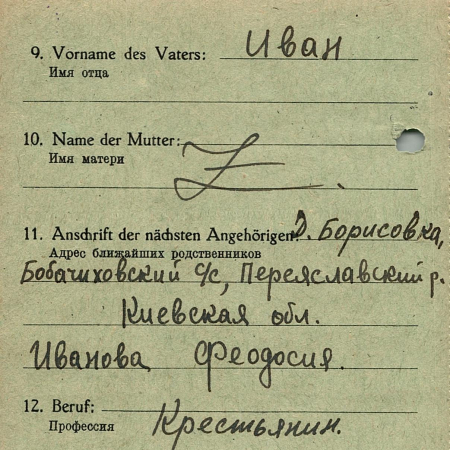 9. Vorname des Vaters: Иван
Имя отца
10. Name der Mutter:
Имя матери
11. Anschrift der nächsten Angehörigen: Д. Борисовка,
Адрес ближайших родственников
Бобачиховский с/с, Переяславский р.
Киевская обл.
Иванова Феодосия.
12. Beruf: Крестьянин.
Профессия